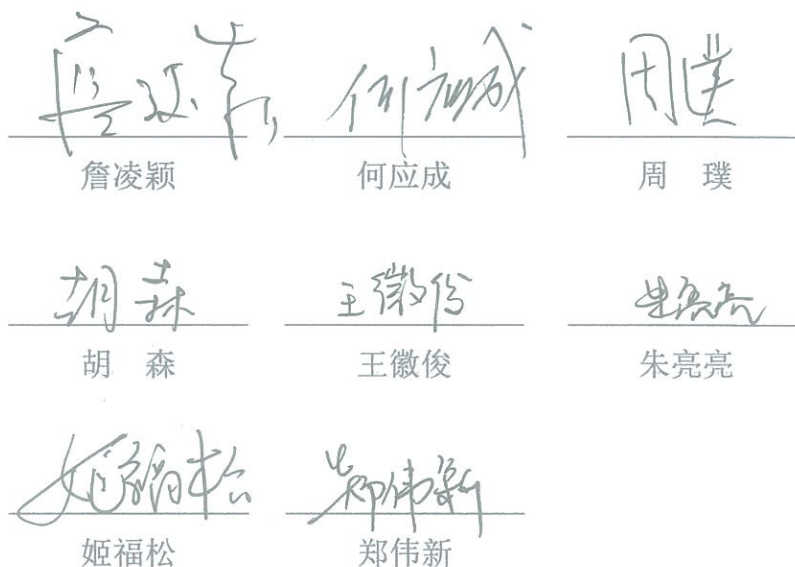 詹凌颖 何应成 周璞
詹凌颖 何应成 周 璞
胡森 王徽俊 朱亮亮
胡 森 王徽俊 朱亮亮
姬福松 郑伟新
姬福松 郑伟新